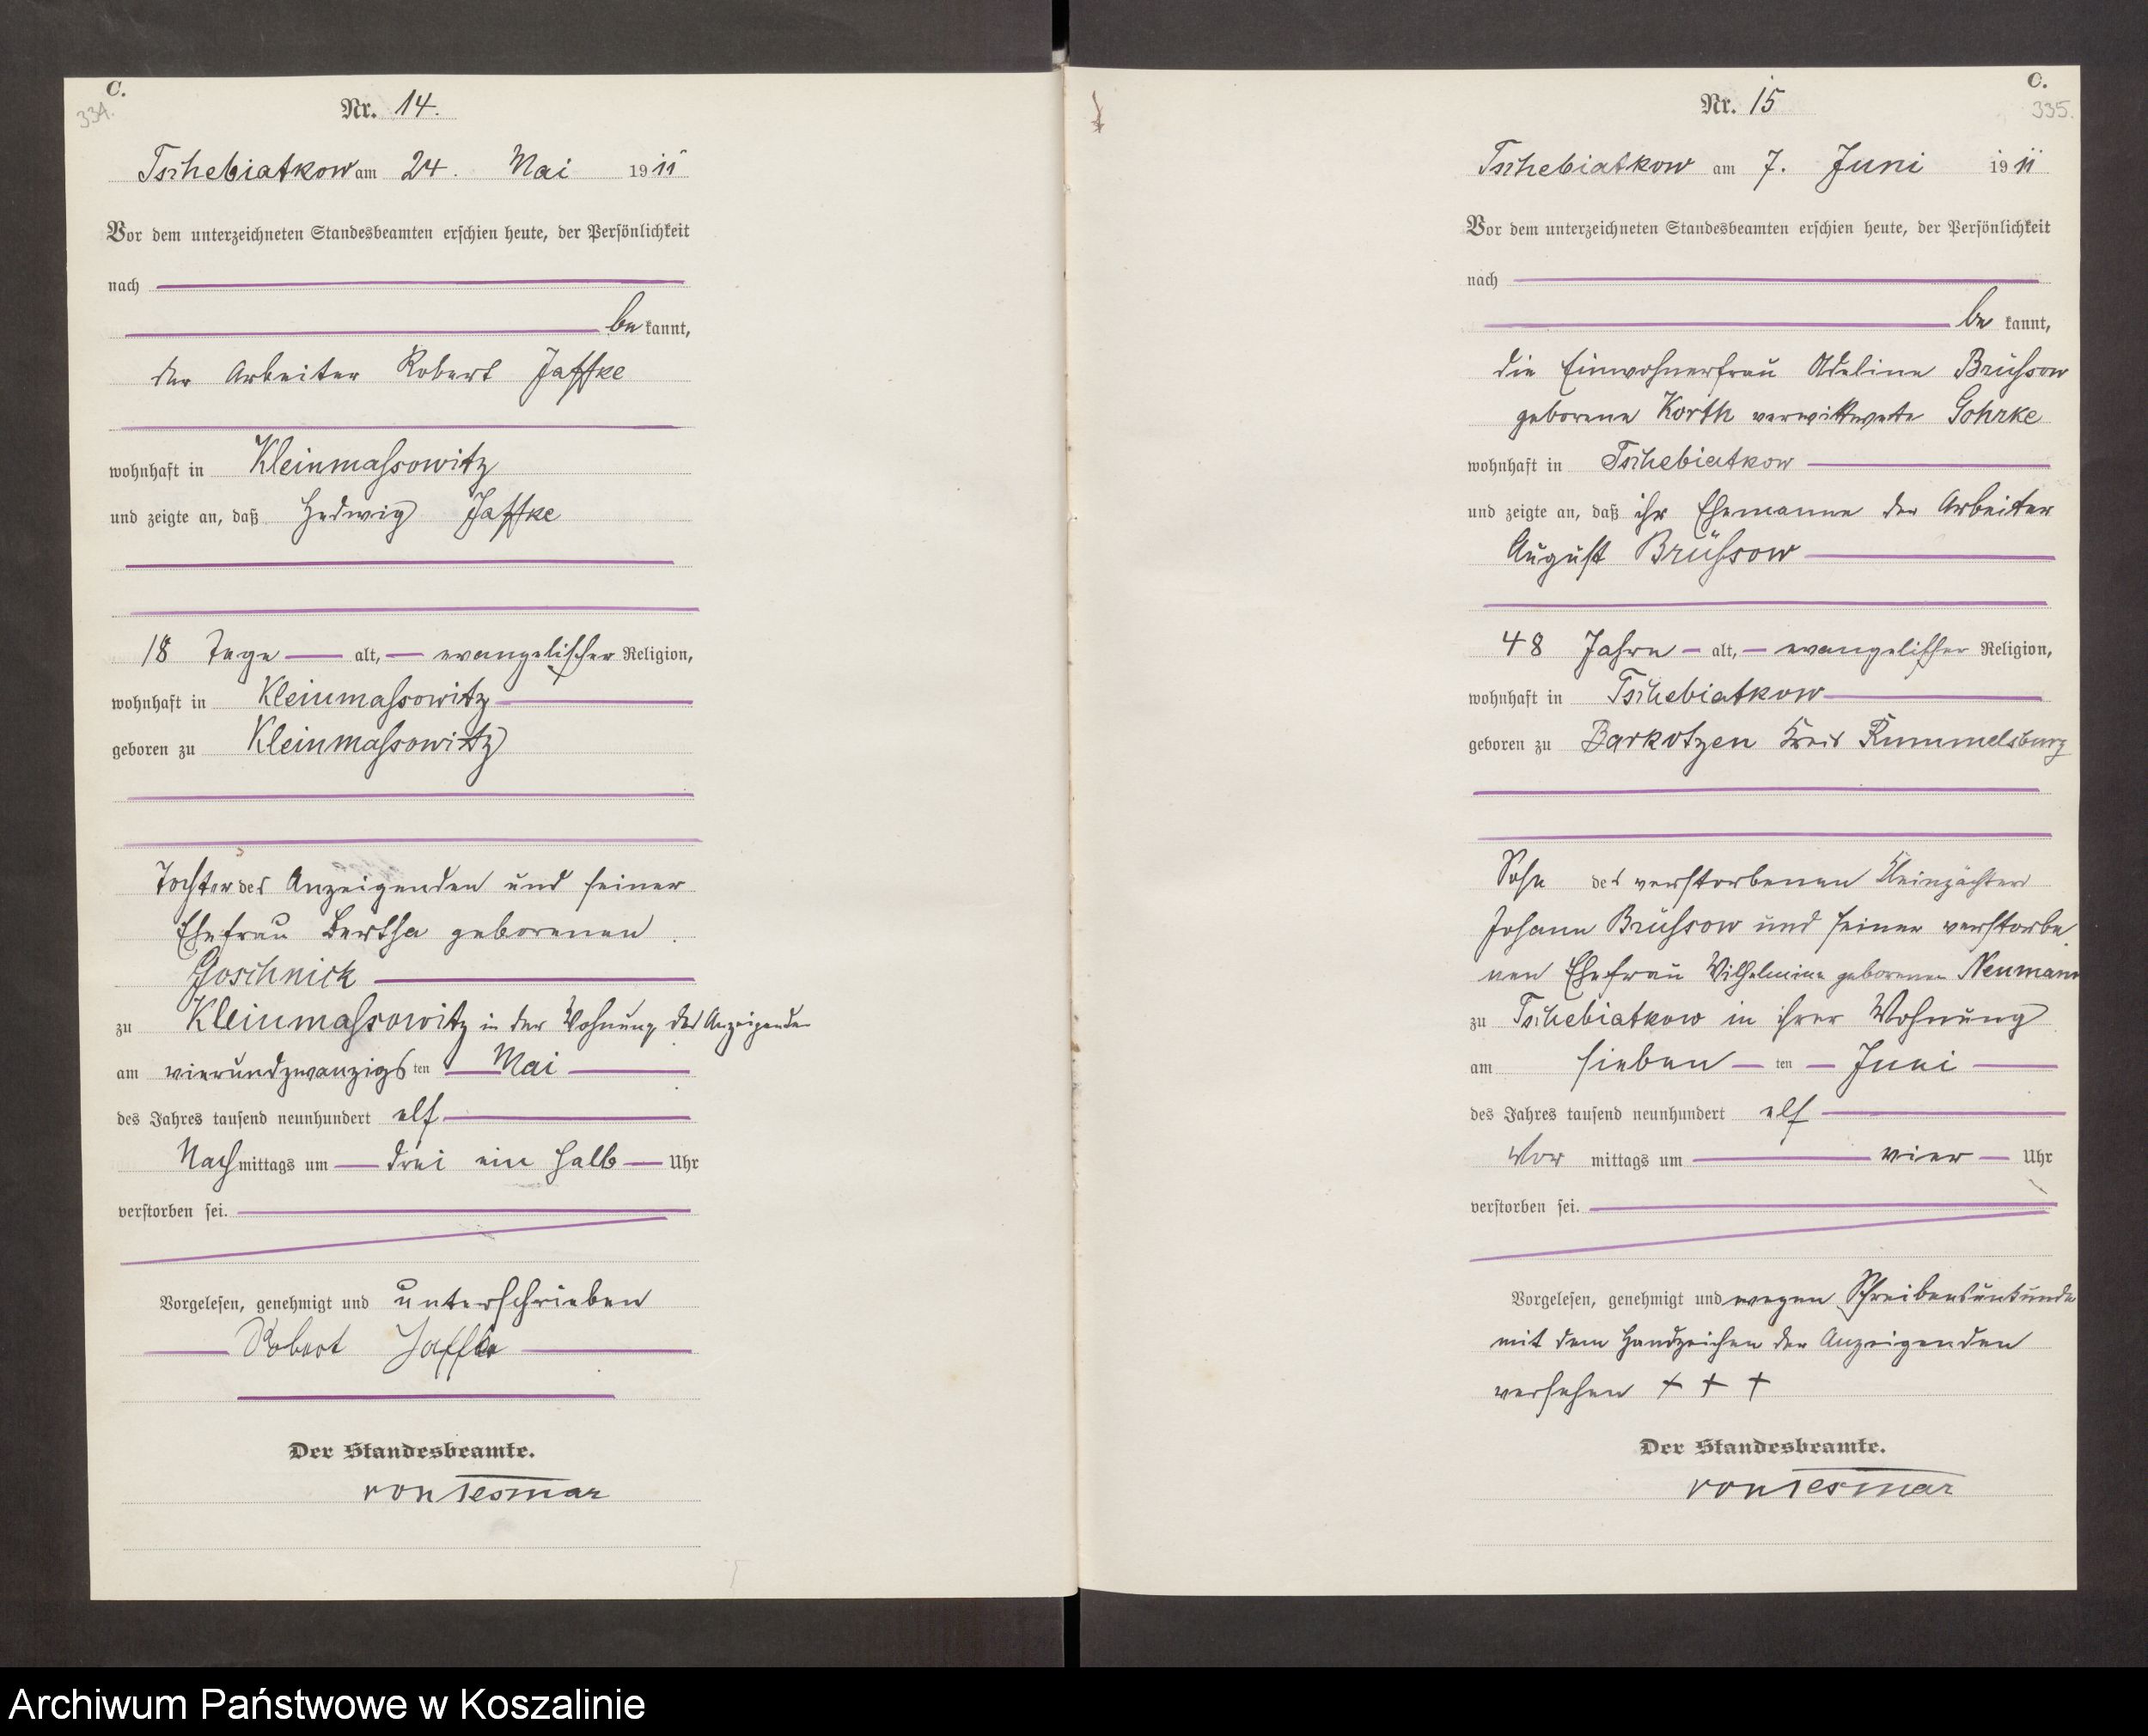 C.
334.
Nr. 14.
Tschebiatkow am 24. Mai 1911
Vor dem unterzeichneten Standesbeamten erschien heute, der Persönlichkeit
nach
be kannt,
der Arbeiter Robert Jaffke
wohnhaft in Kleinmassowitz
und zeigte an, daß Hedwig Jaffke
18 Tage alt, evangelischer Religion,
wohnhaft in Kleinmassowitz
geboren zu Kleinmassowitz
Tochter des Anzeigenden und seiner
Ehefrau Bertha geborenen
Goschnick
zu Kleinmassowitz in der Wohnung des Anzeigenden
am vierundzwanzigs ten Mai
des Jahres tausend neunhundert elf
Nach mittags um drei ein halb Uhr
verstorben sei.
Vorgelesen, genehmigt und unterschrieben
Robert Jaffke
Der Standesbeamte.
von Tesmar
C.
335.
Nr. 15
Tschebiatkow am 7. Juni 1911
Vor dem unterzeichneten Standesbeamten erschien heute, der Persönlichkeit
nach
be kannt,
die Einwohnerfrau Adeline Brüssow
geborene Korth verwittwete Gohrke
wohnhaft in Tschebiatkow
und zeigte an, daß ihr Ehemanne der Arbeiter
August Brüssow
48 Jahre alt, evangelischer Religion,
wohnhaft in Tschebiatkow
geboren zu Barkotzen Kreis Rummelsburg
Sohn des verstorbenen Kleinpächters
Johann Brüssow und seiner verstorbe
nen Ehefrau Wilhelmine geborenen Neumann
zu Tschebiatkow in ihrer Wohnung
am sieben ten Juni
des Jahres tausend neunhundert elf
Vor mittags um vier Uhr
verstorben sei.
Vorgelesen, genehmigt und wegen Schreibensunkunde
mit dem Handzeichen der Anzeigenden
versehen + + +
Der Standesbeamte.
von Tesmar
Archiwum Państwowe w Koszalinie